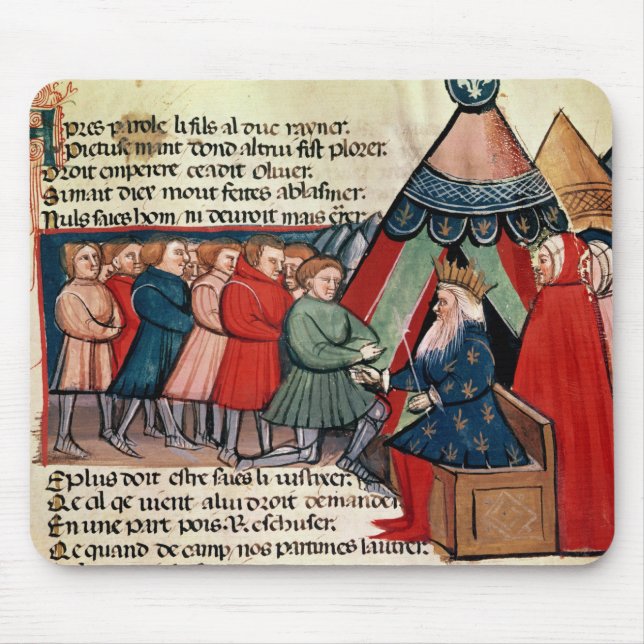 Apres parole li fils al duc rayner.
Pietusemant dond altrui fist plorer.
Droit emperere ce a dit oliuer.
Si mait diex mout feites ablasmer.
Nuls saies hom ni deuroit mais
E plus doit estre saies li
Qe cil qe uient alui droit demander
En une part pois R. eschuser.
Qe quand de camp nos partimes lautrer.